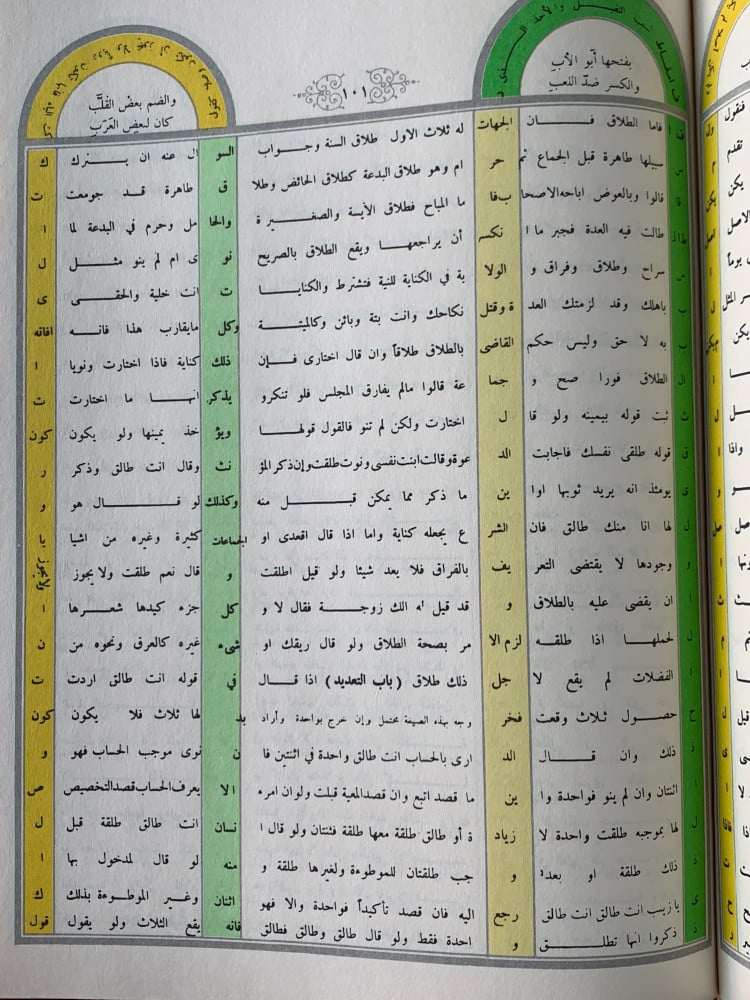 ١٠١
بفتحها أبو الأب
والكسر ضدّ النعب
والضم بعض القلَب
كان لبعض العَرَب
فاما الطلاق فــــان الجهات له ثلاث الاول طلاق السنة وجـــواب الــو ال عنه ان يـــترك ك
سبيلها طاهرة قبل الجماع ثم حر ام وهو طلاق البدعة كطلاق الحائض وطلا ق طاهرة قد جومعت ت
قالوا وبالعوض اباحه الاصحا ب فا ما المباح فطلاق الآيسة والصغيـــرة والحا مل وحرم في البدعة لما ا
طالت فيه العدة فجبر ما ا نكسـ أن يراجعهـــا ويقع الطلاق بالصريح نو ى ام لم ينو مثـــل ل
سراح وطلاق وفراق و الولا ية في الكناية للنية فتشترط والكنايـــا ت انت خلية والحقـــى ى
باهلك وقد لزمتك العد ة وقتل نكاحك وانت بتة وبائن وكالميتـــة وكل مايقارب هذا فانـــه افانه
به لا حق وليس حكم القاضى بالطلاق طلاقاً وان قال اختارى فـــإن ذلك كناية فاذا اختارت ونويا ا
الطلاق فورا صح و جما عة قالوا مالم يفارق المجلس فلو تنكرو يذكر انهـــا ما اختارت ت
ثبت قوله بيمينه ولو قا ل اختارت ولكن لم تنو فالقول قولهـــا ويؤ خذ يمينها ولو يكون كون
قوله طلقى نفسك فاجابت الد عوة وقالت ابنت نفسى ونوت طلقت وإن ذكر المؤ نث وقال انت طالق وذكر ر
يومئذ انه يريد ثوبها اوا ين ما ذكر مما يمكن قبـــل منه وكذلك لو قـــال هو و
لها انا منك طالق فان الشر ع يجعله كناية واما اذا قال اقعدى او الجماعات كثيرة وغيره من اشيا با
وجودها لا يقتضى التعر يف بالفراق فلا يعد شيئا ولو قيل اطلقت و قال نعم طلقت ولا يجوز ولا يجوز
ان يقضى عليه بالطلاق و قد قيل له الك زوجـــة فقال لا و كل جزء كيدها شعـــرها ا
لحملهـــا اذا طلقـــه لزم الا مر بصحة الطلاق ولو قال ريقك او شىء غيره كالعرق ونحوه من ن
الفضلات لم يقع لا جل ذلك طلاق (باب التعديد) اذا قـــال في قوله انت طالق اردت ت
حصـــول ثلاث وقعت فخر وجه بهذه الصيغة محتمل وإن خرج بواحدة وأراد بد لها ثلاث فلا يكون كون
ذلك وان قـــال الد ارى بالحساب انت طالق واحدة في اثنتين فا ن نوى موجب الحساب فهو و
اثنتان وان لم ينو فواحدة وا ين ما قصد اتبع وان قصد المعية قبلت ولوان امرء الا يعرف الحساب قصد التخصيص ص
لها بموجبه طلقت واحدة لا زياد ة أو طالق طلقة معها طلقة فثنتان ولو قال ا نسان انت طالق طلقة قبل ل
ذلك طلقة او بعد و جب طلقتان للموطوءة ولغيرها طلقة و منه لو قال لمدخول بها ا
يا زينب انت طالق انت طالق رجع اليه فان قصد تأكيداً فواحدة والا فهو اثنان وغير الموطوءة بذلك ك
ذكروا انها تطلـــق و احدة فقط ولو قال طالق وطالق فطالق فانه يقع الثلاث ولو يقول قول